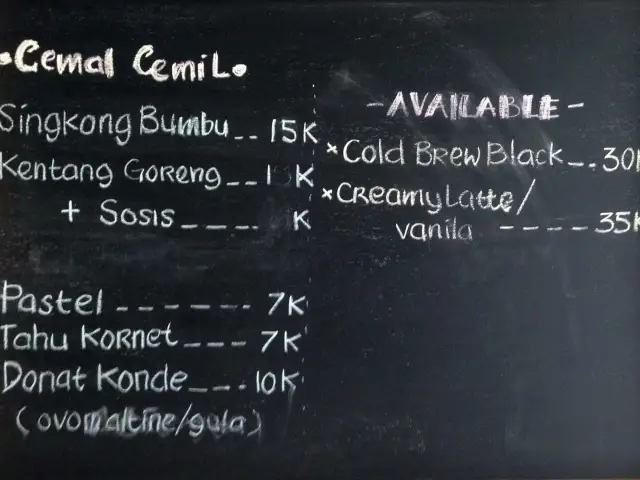 •Cemal Cemil•
Singkong Bumbu -- 15K
Kentang Goreng -- 1 K
+ Sosis ---- K
Pastel ------- 7K
Tahu Kornet --- 7K
Donat Konde --- 10K
(ovomaltine/gula)
- AVAILABLE -
×Cold Brew Black -- 30K
×Creamy Latte/
vanila ---- 35K